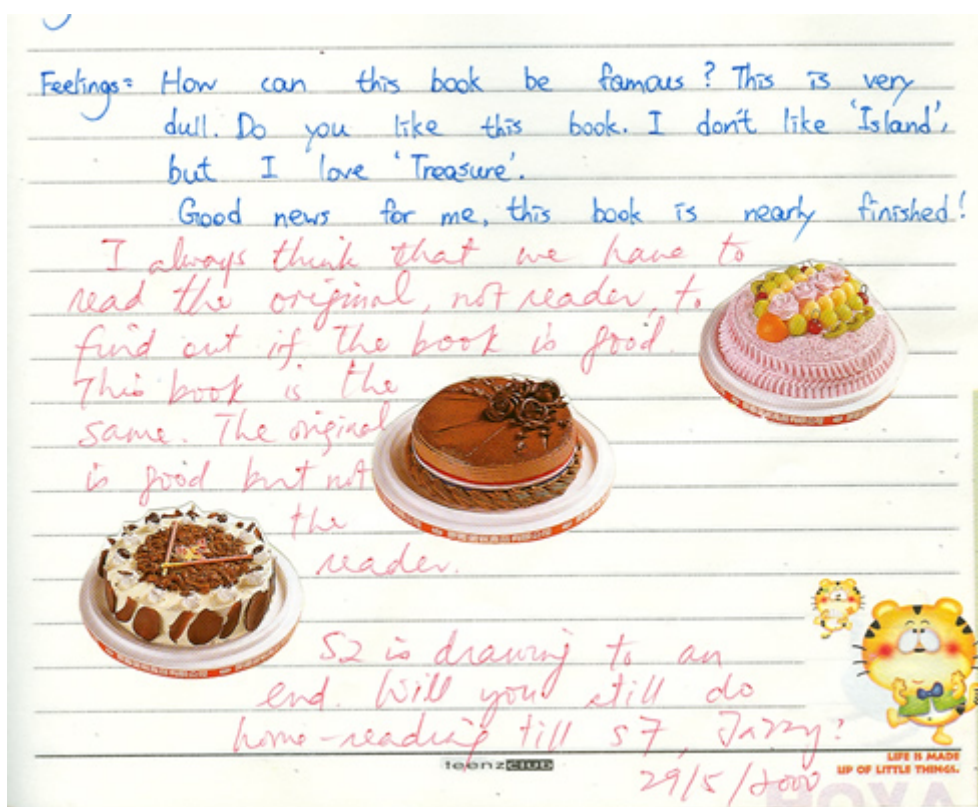 Feelings: How can this book be famous? This is very
dull. Do you like this book. I don't like 'Island',
but I love 'Treasure'.
Good news for me, this book is nearly finished!
I always think that we have to
read the original, not reader, to
find out if the book is good.
This book is the
same. The original
is good but not
the
reader.
S2 is drawing to an
end. Will you still do
home-reading till S7, Jazzy?
teenzclub
29/5/2000
LIFE IS MADE
UP OF LITTLE THINGS.